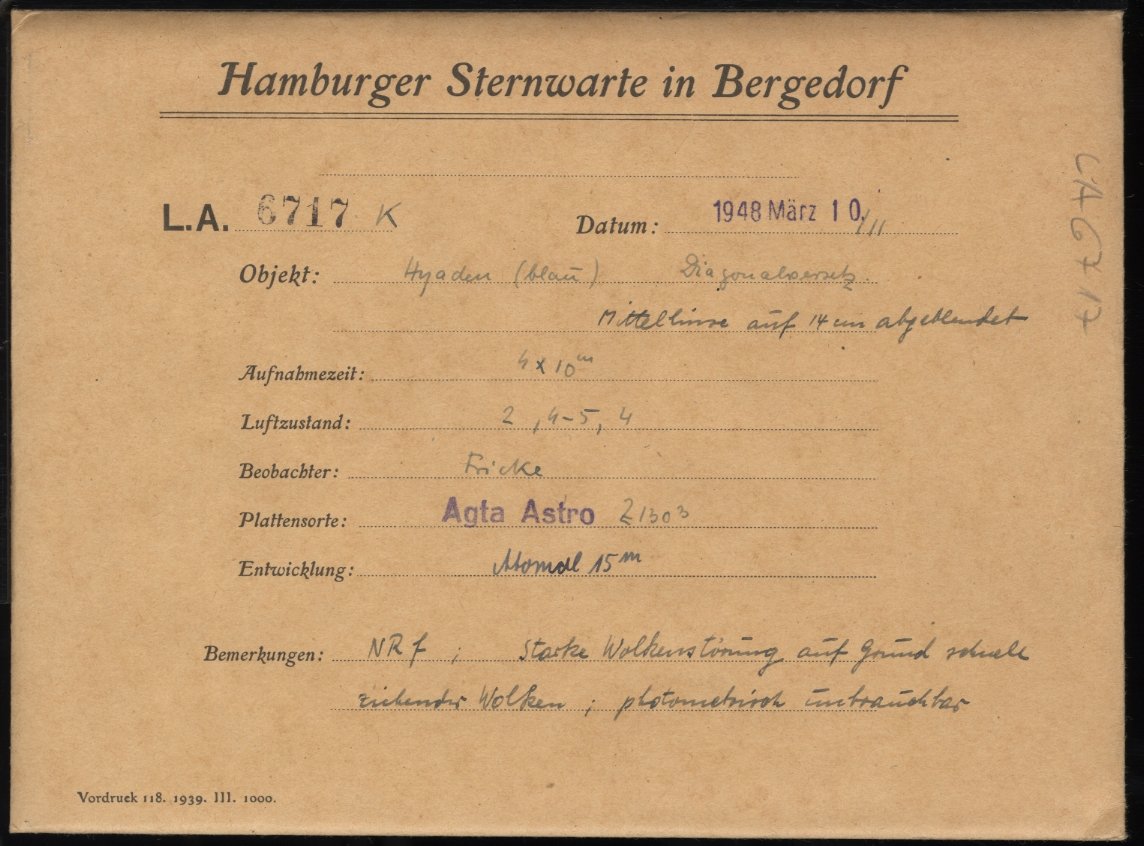 Hamburger Sternwarte in Bergedorf
L.A. 6717 K Datum: 1948 März 10./11
Objekt: Hyaden (blau) Diagonalversetz.
Mittellinse auf 14 cm abgeblendet
Aufnahmezeit: 4 x 10m
Luftzustand: 2, 4-5, 4
Beobachter: Fricke
Plattensorte: Agfa Astro Z1303
Entwicklung: Atomal 15m
Bemerkungen: NR f; Starke Wolkenstörung auf Grund schnell
ziehender Wolken; photometrisch unbrauchbar
Vordruck 118. 1939. III. 1000.
LA 6717